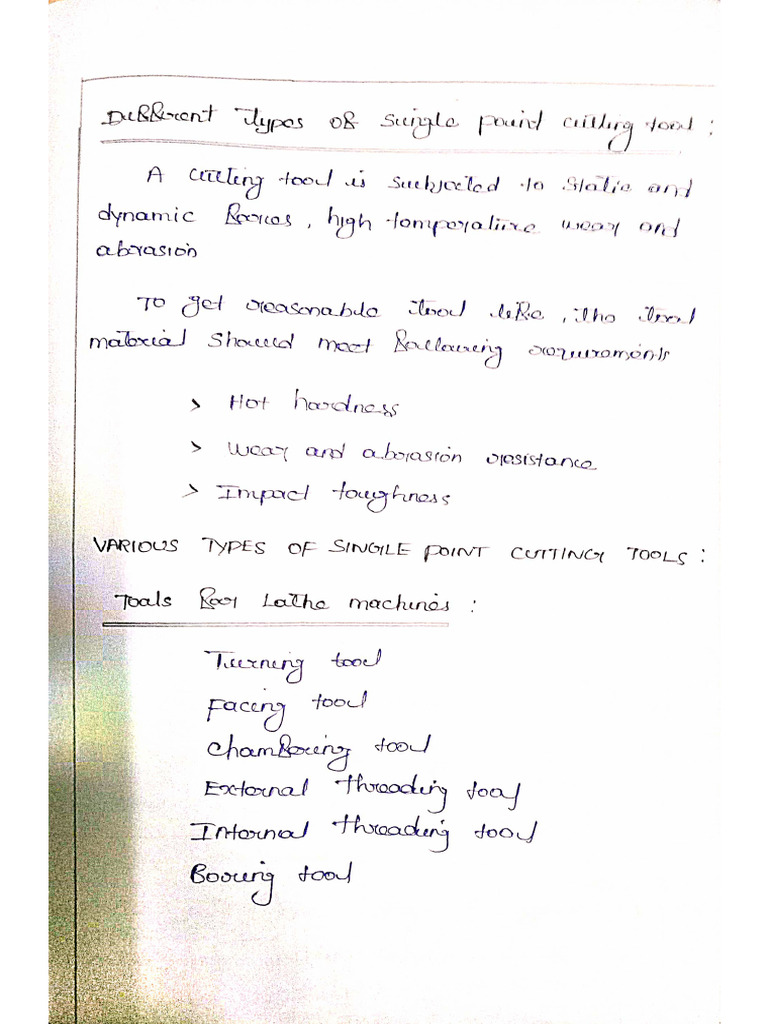 Different Types of Single point cutting tool :
A cutting tool is subjected to static and
dynamic forces, high temperature wear and
abrasion
To get reasonable tool life, the tool
material should meet following requirements
> Hot hardness
> Wear and abrasion resistance
> Impact toughness
VARIOUS TYPES OF SINGLE POINT CUTTING TOOLS :
Tools for Lathe machines :
Turning tool
Facing tool
Chamfering tool
External threading tool
Internal threading tool
Boring tool